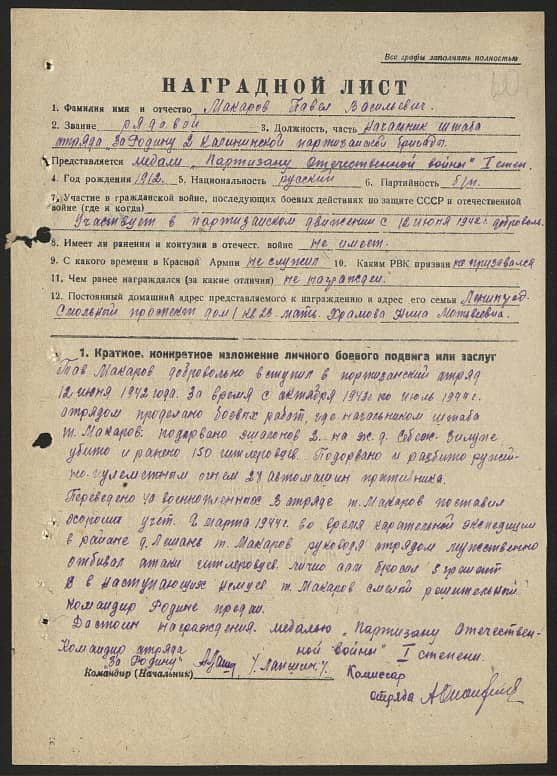 Все графы заполнять полностью
НАГРАДНОЙ ЛИСТ
1. Фамилия имя и отчество Макаров Павел Васильевич.
2. Звание рядовой 3. Должность, часть Начальник штаба
отряда За Родину 2 Калининской партизанской бригады.
Представляется медали „Партизану Отечественной войны" I степ.
4. Год рождения 1912. 5. Национальность русский 6. Партийность б/п.
7. Участие в гражданской войне, последующих боевых действиях по защите СССР и отечественной
войне (где и когда)
Участвует в партизанском движении с 12 июня 1942 г. доброволь.
8. Имеет ли ранения и контузии в отечест. войне не имеет.
9. С какого времени в Красной Армии не служил 10. Каким РВК призван не призывался
11. Чем ранее награждался (за какие отличия) не награжден.
12. Постоянный домашний адрес представляемого к награждению и адрес его семьи Ленинград
Смольный проспект дом кв 23 мать. Храмова Нина Матвеевна.
1. Краткое, конкретное изложение личного боевого подвига или заслуг
Тов Макаров добровольно вступил в партизанский отряд
12 июня 1942 года. За время с октября 1943 г по июль 1944 г.
отрядом проделано боевых работ, где начальником штаба
т. Макаров: подорвано эшалонов 2 на ж.д. Себеж-Зилупе
убито и ранено 150 гитлеровцев. Подорвано и разбито ружей-
но-пулеметным огнем 27 автомашин противника.
Переведено военнопленных В отряде т. Макаров поставил
хороший учет. 2 марта 1944 г. во время карательной экспедиции
в районе д. т. Макаров руководя отрядом мужественно
отбивал атаки гитлеровцев. лично сам бросил 3 гранаты
в наступающих немцев т. Макаров смелый решительный
командир Родине предан.
Достоин награждения. медалью „Партизану Отечествен-
ной войны" I степени.
Командир отряда
"За Родину" Лапшин
Командир (Начальник)
Комиссар
отряда